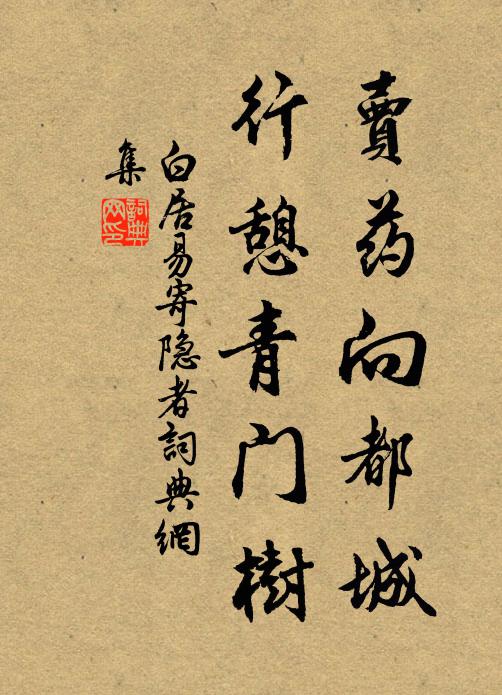 賣药向都城
行憩青门樹
白居易寄隐者詞典網
集
詞典網印